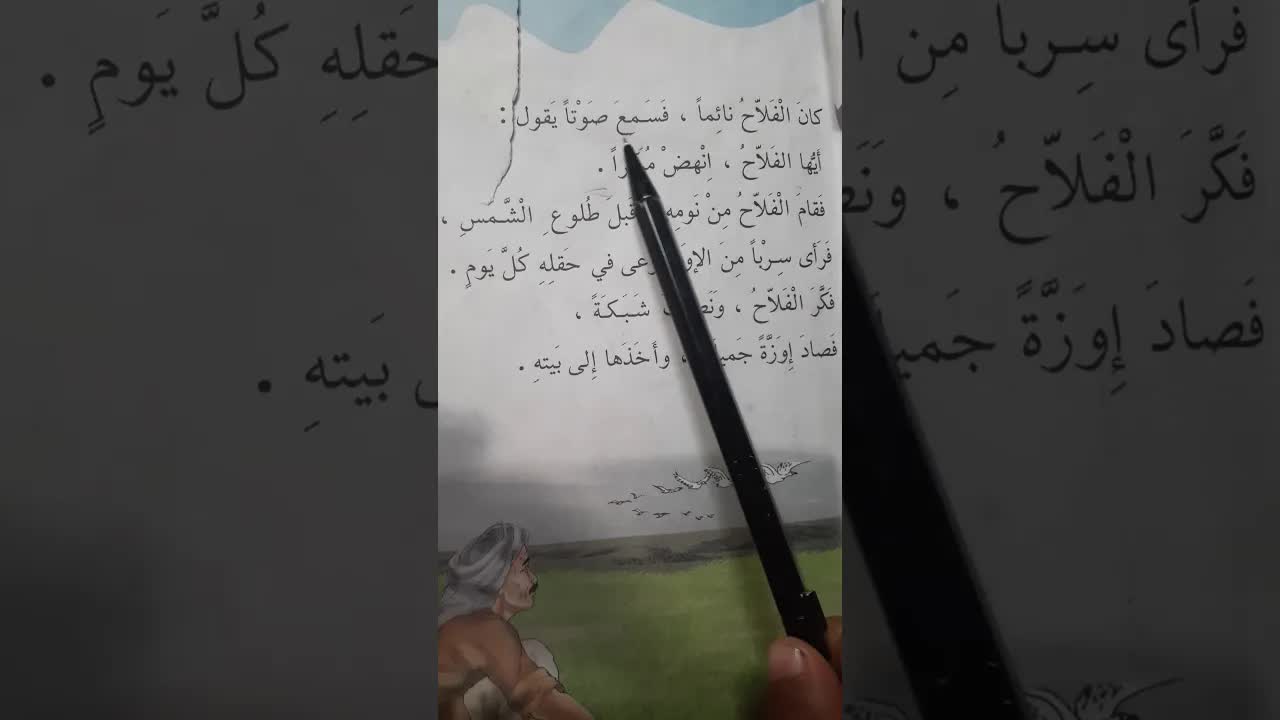 كانَ الْفَلاّحُ نائِماً ، فَسَـمعَ صَوْتاً يَقول :
أيُّها الفَلاّحُ ، اِنْهضْ .
فَقامَ الْفَلاّحُ مِنْ نَومِهِ قَبلَ طُلوعِ الْشَّـمسِ ،
فَرَأى سِـرْباً مِنَ في حَقلِهِ كُلَّ يَومٍ .
فَكَّرَ الْفَلاّحُ ، شَـبَـكَـةً ،
فَصادَ إِوَزَّةً ، وأَخَذَها إِلى بَيتهِ .